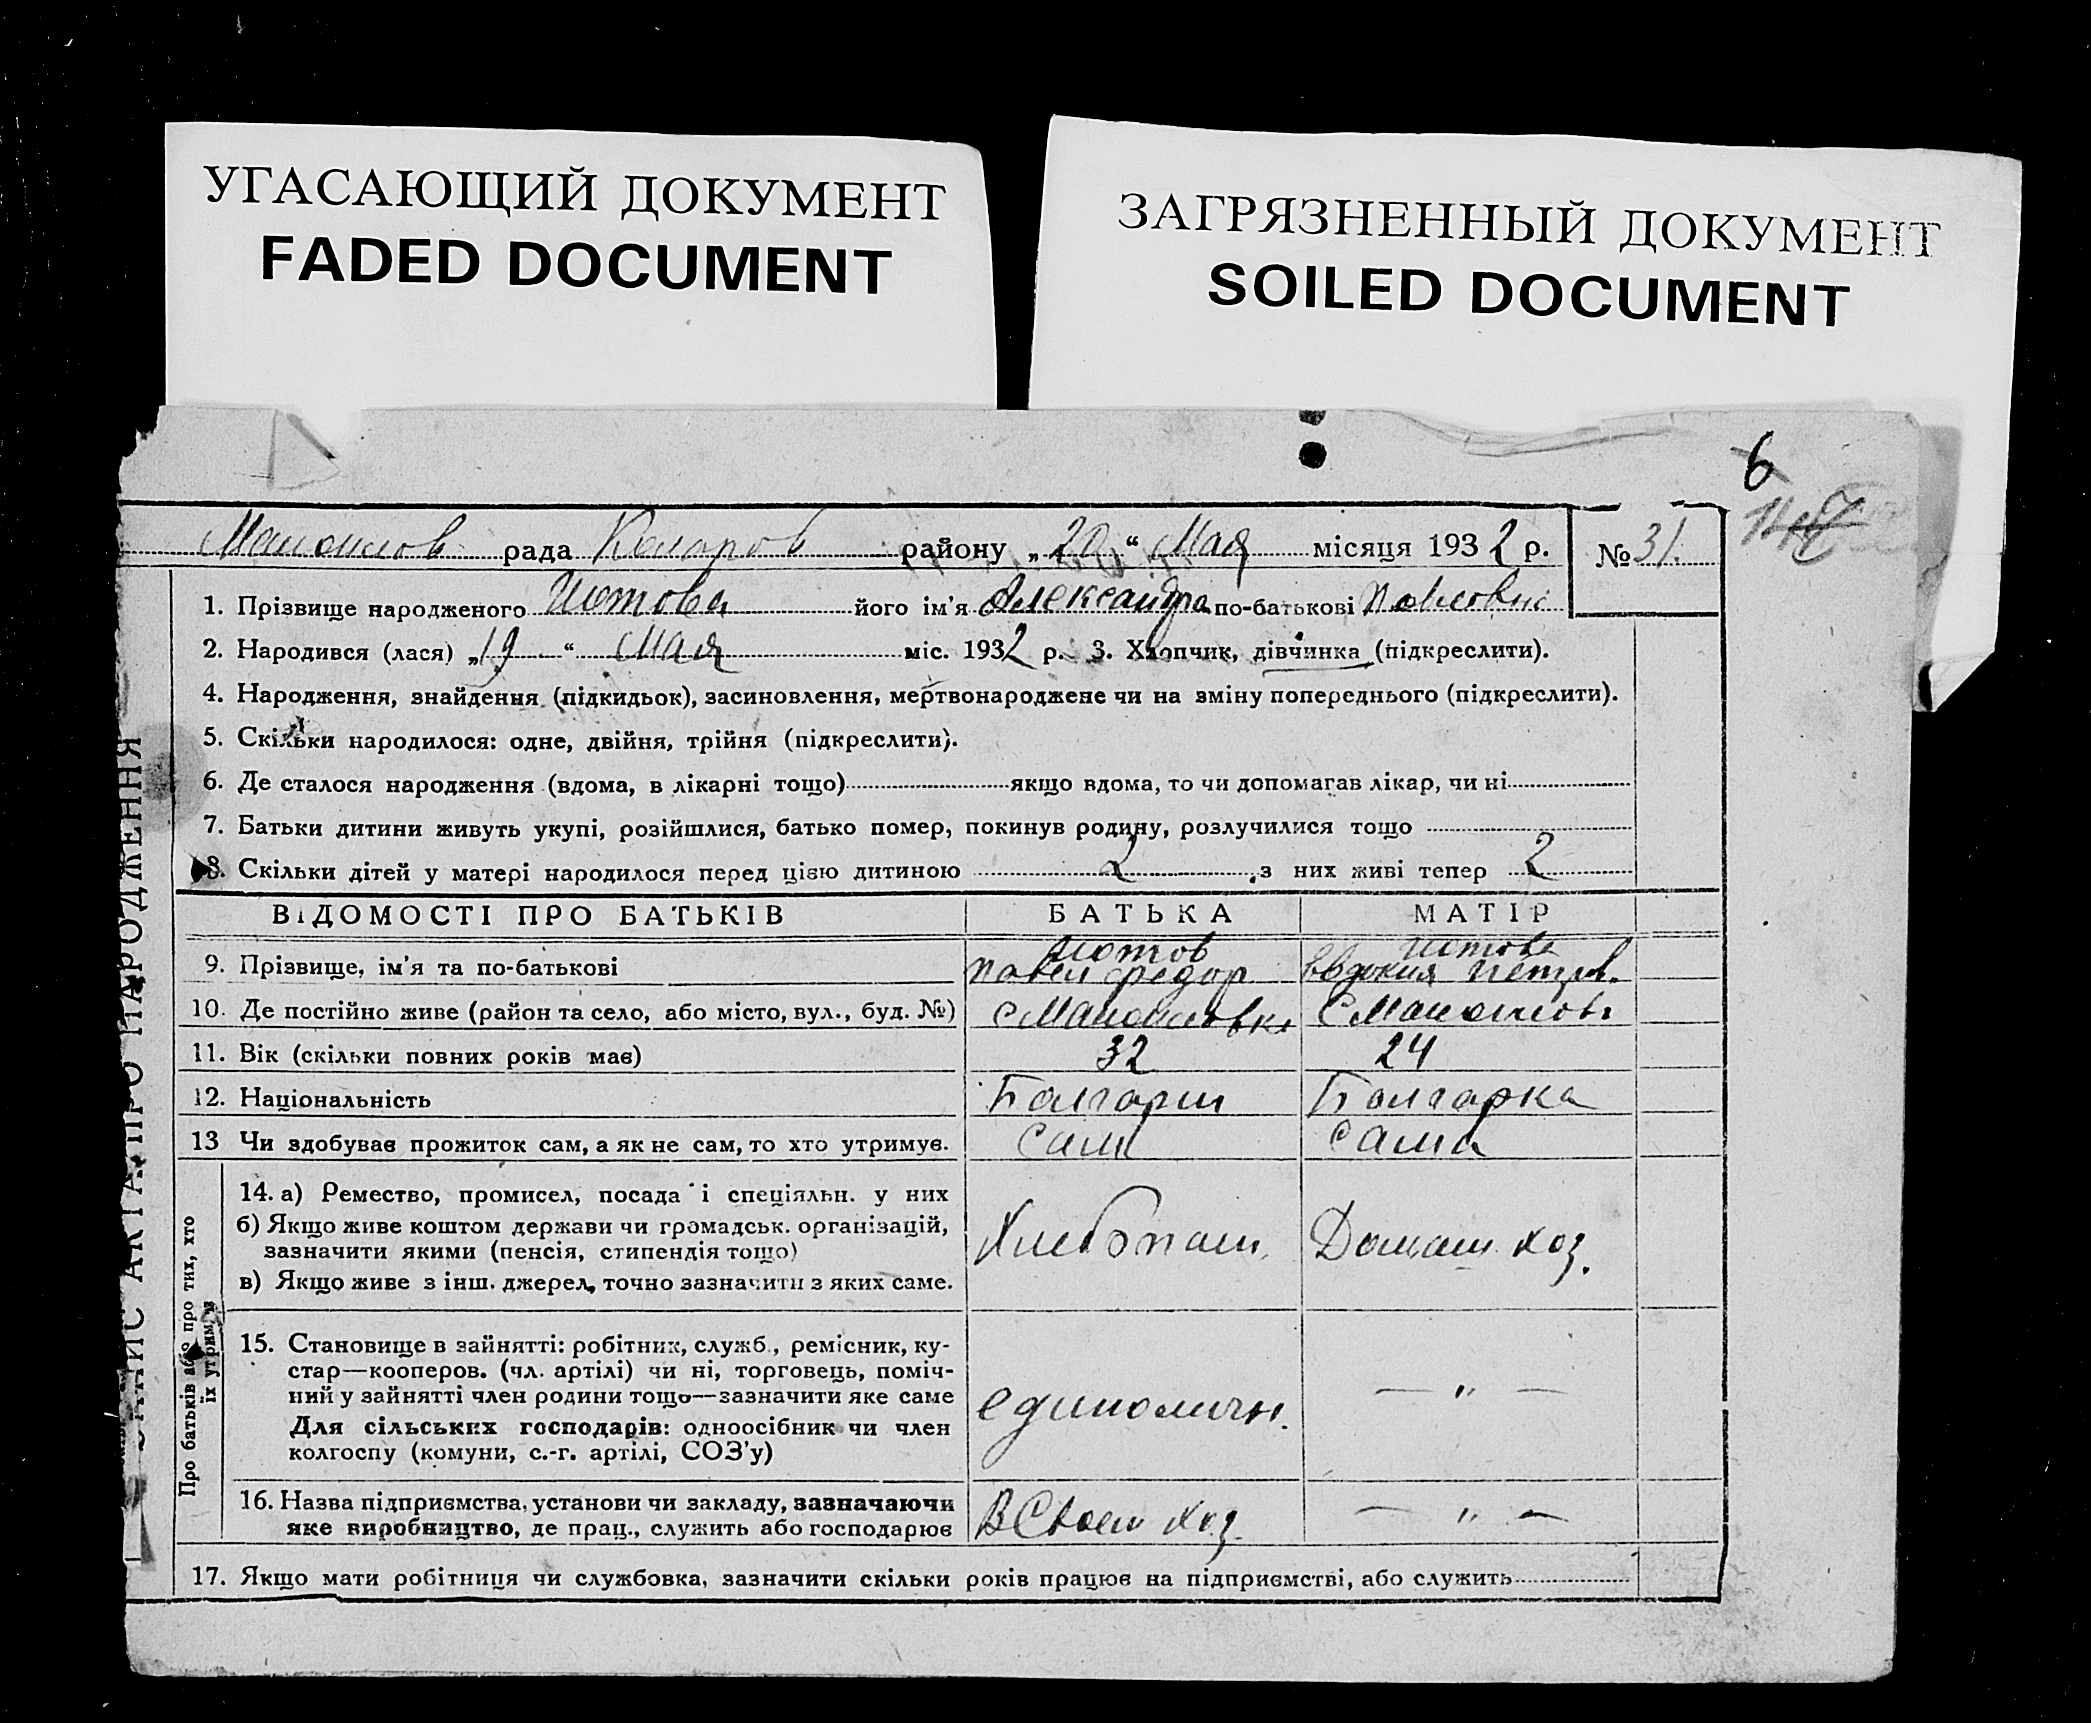 УГАСАЮЩИЙ ДОКУМЕНТ
FADED DOCUMENT
ЗАГРЯЗНЕННЫЙ ДОКУМЕНТ
SOILED DOCUMENT
6
Манойлов рада Коларов району „20“ Мая місяця 1932 р. № 31.
1. Прізвище народженого Иотова його ім'я Александра по-батькові Павловна
2. Народився (лася) „19“ Мая міс. 1932 р. 3. Хлопчик, дівчинка (підкреслити).
4. Народження, знайдення (підкидьок), засиновлення, мертвонароджене чи на зміну попереднього (підкреслити).
5. Скільки народилося: одне, двійня, трійня (підкреслити).
6. Де сталося народження (вдома, в лікарні тощо) якщо вдома, то чи допомагав лікар, чи ні
7. Батьки дитини живуть укупі, розійшлися, батько помер, покинув родину, розлучилися тощо
8. Скільки дітей у матері народилося перед цією дитиною 2 з них живі тепер 2
ВІДОМОСТІ ПРО БАТЬКІВ БАТЬКА МАТІР
9. Прізвище, ім'я та по-батькові Иотов Павел Федор. Иотова Евдокия Петров.
10. Де постійно живе (район та село, або місто, вул., буд. №) с Манойловка с Манойлов
11. Вік (скільки повних років має) 32 24
12. Національність Болгарин Болгарка
13 Чи здобував прожиток сам, а як не сам, то хто утримує. Сам Сама
Про батьків або про тих, хто
їх утримує
14. а) Ремество, промисел, посада і спеціяльн. у них
б) Якщо живе коштом держави чи громадськ. організацій,
зазначити якими (пенсія, стипендія тощо)
в) Якщо живе з інш. джерел, точно зазначити з яких саме.
Хлебопаш. Домаш хоз.
15. Становище в зайнятті: робітник, служб., ремісник, ку-
стар—кооперов. (чл. артілі) чи ні, торговець, поміч-
ний у зайнятті член родини тощо—зазначити яке саме
Для сільських господарів: одноосібник чи член
колгоспу (комуни, с.-г. артілі, СОЗ'у)
единоличн. — „ —
16. Назва підприємства, установи чи закладу, зазначаючи
яке виробництво, де прац., служить або господарює
В Своем хоз. — „ —
17. Якщо мати робітниця чи службовка, зазначити скільки років працює на підприємстві, або служить